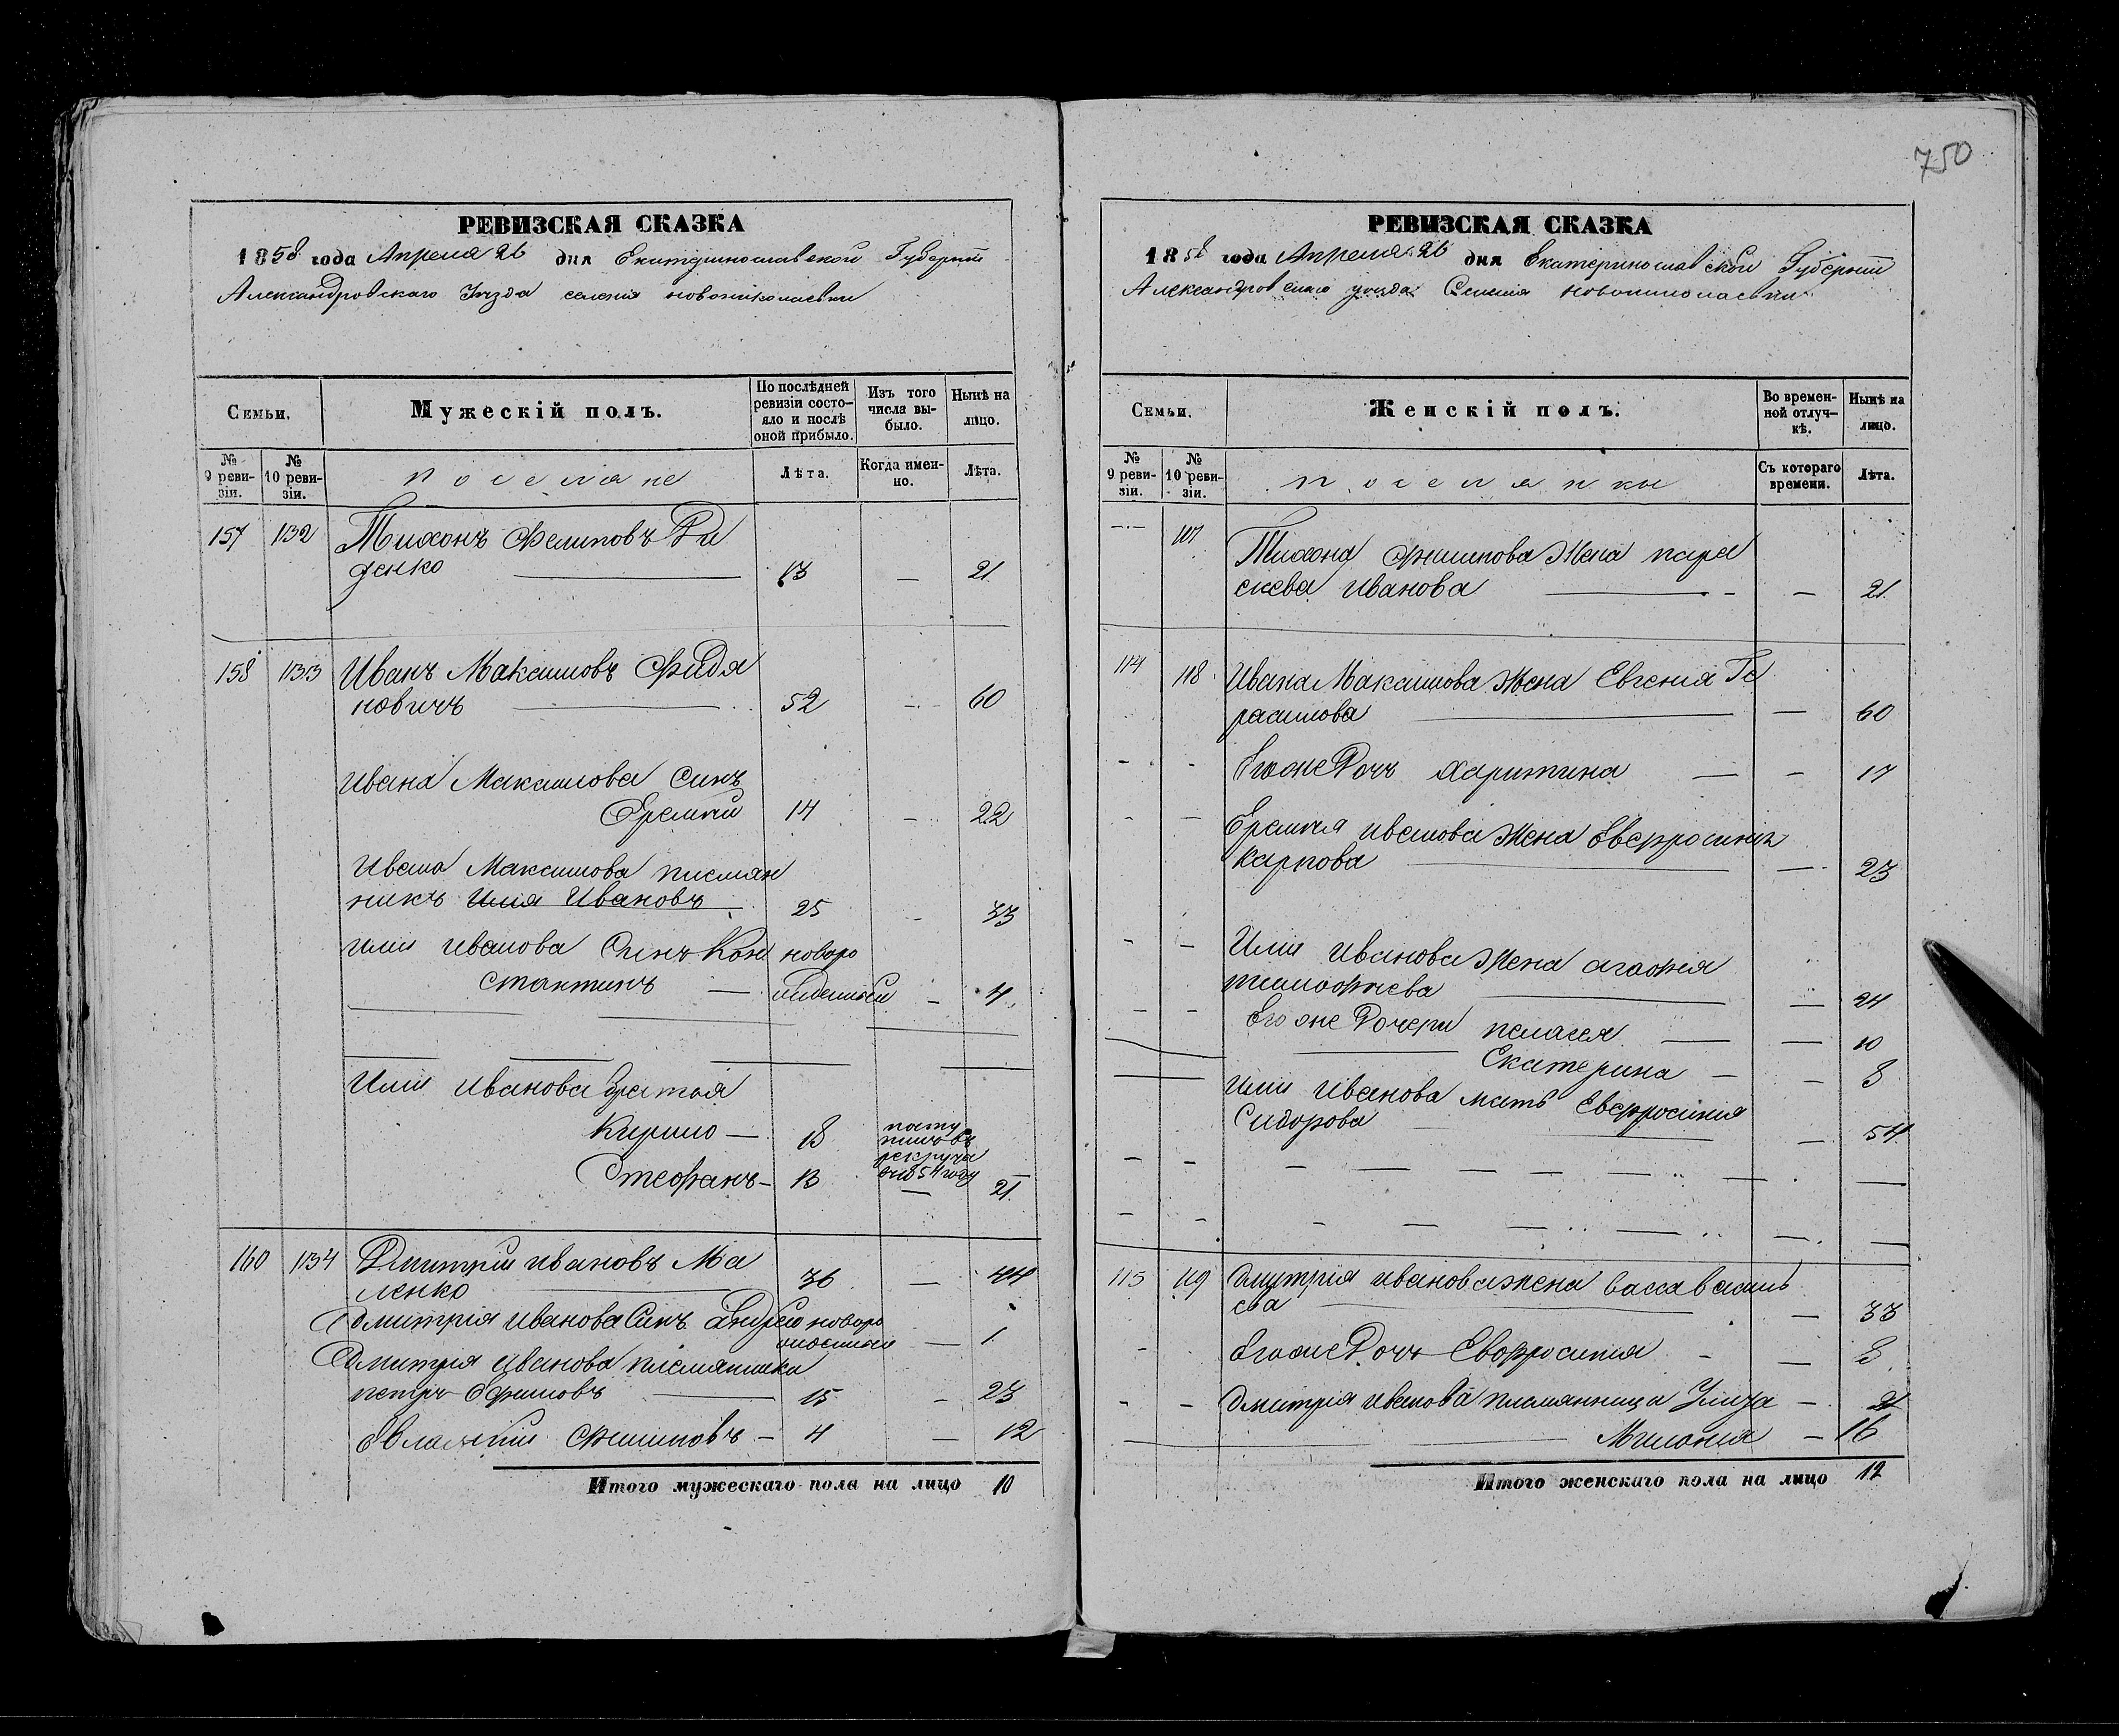 750
РЕВИЗСКАЯ СКАЗКА
1858 года Апреля 26 дня Екатеринославской Губернии
Александровскаго Уезда селения новониколаевки
Семьи.
Мужескій полъ.
По послѣдней ревизіи состо-
яло и послѣ
оной прибыло.
Изъ того
числа вы-
было.
Нынѣ на
лицо.
№
9 реви-
зіи.
№
10 реви-
зіи.
поселяне
Лѣта.
Когда имен-
но.
Лѣта.
157 132 Тихонъ Филиповъ Ди
денко 13 — 21
158 133 Иванъ Максимовъ Фидя
новичъ 52 — 60
Ивана Максимова Синъ
Еремей 14 — 22
Ивана Максимова племян
никъ Илия Ивановъ 25 — 33
Илии Иванова Синъ Кон новоро
стантинъ — — 4
Илии Иванова Братья
Кирило — 18
в 1854 году
Стефанъ — 13 — 21
160 134 Дмитрий ивановъ Ма
ленко 36 — 44
Дмитрія Иванова Синъ Андрей новоро
— 1
Дмитрия Иванова племянники
петръ Ефимовъ 15 — 23
Евлампий Филиповъ — 4 — 12
Итого мужескаго пола на лицо 10
РЕВИЗСКАЯ СКАЗКА
1858 года Апреля 26 дня Екатеринославской Губернии
Александровскаго уезда Селения Новониколаевки
Семьи.
Женскій полъ.
Во времен-
ной отлуч-
кѣ.
Нынѣ на
лицо.
№
9 реви-
зіи.
№
10 реви-
зіи.
поселянки
Съ котораго
времени.
Лѣта.
— 117 Тихона Филипова Жена пара
скева Иванова — 21
114 118 Ивана Максимова Жена Евгения Ге
расимова — 60
Егоже Дочь Харитина — — 17
Еремия Иванова Жена Евфросиния
Карпова — 23
Илии Иванова Жена агафия
тимофеева — 24
Егоже Дочери пелагея — — 10
Екатерина — — 8
Илии Иванова мать Евфросиния
Сидорова — 54
115 119 Дмитрия Иванова жена Васса Василь
ева — 33
Егоже Дочь Евфросиния — — 8
Дмитрия Иванова племянница — 21
— 16
Итого женскаго пола на лицо 12